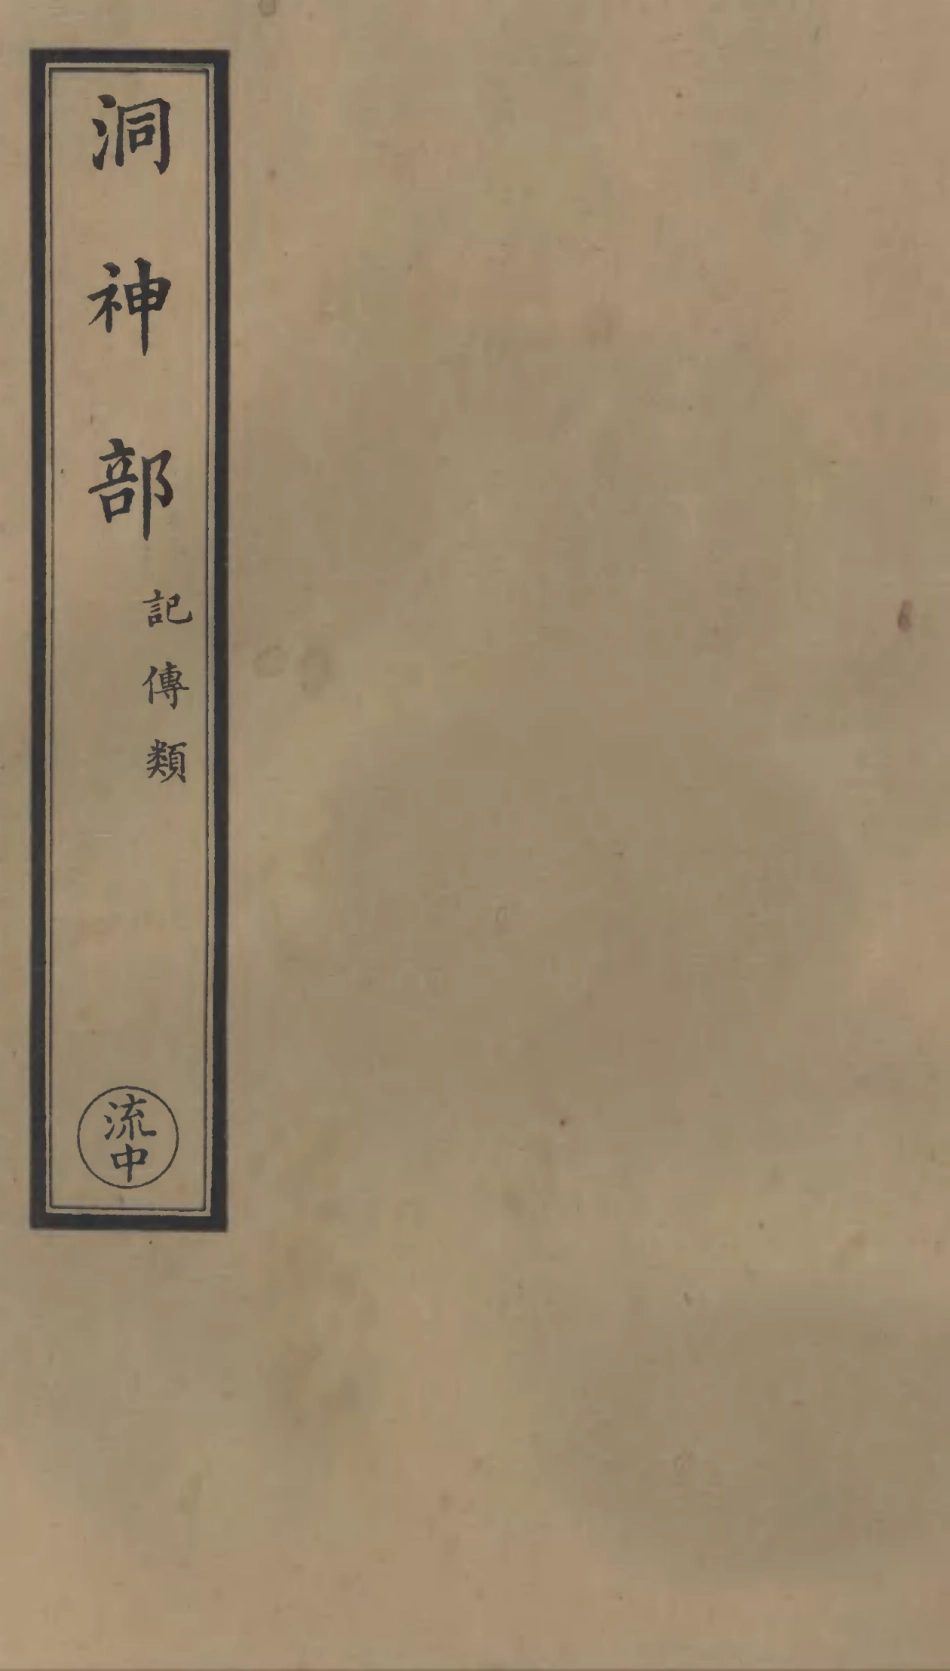 洞神部
記傳類
流中